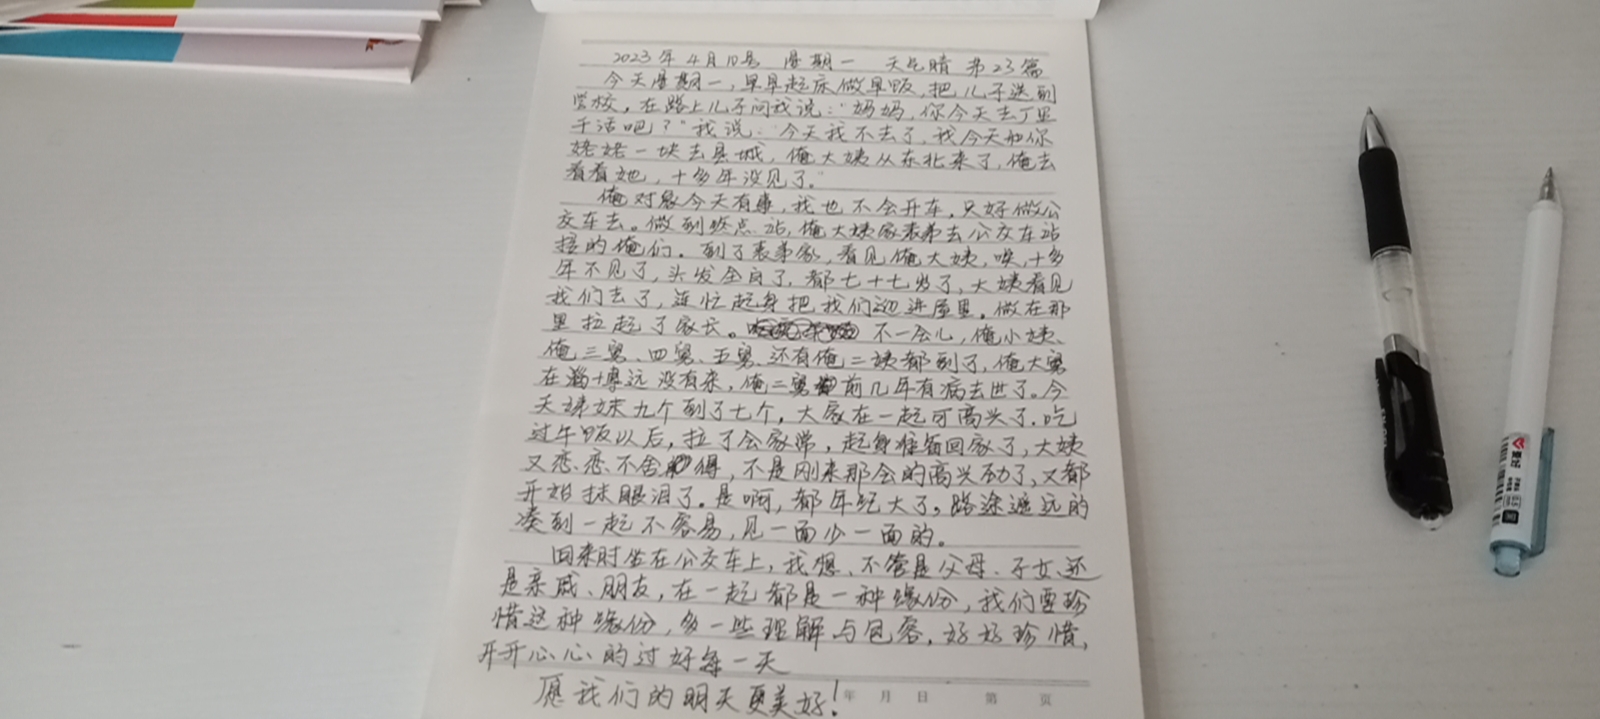 2023年4月10号 星期一 天气晴 第23篇
今天星期一,早早起床做早饭,把儿子送到
学校,在路上儿子问我说:“妈妈,你今天去丁里
干活吧?”我说:“今天我不去了,我今天和你
姥姥一块去县城,俺大姨从东北来了,俺去
看看她,十多年没见了。”
俺对象今天有事,我也不会开车,只好做公
交车去。做到终点站,俺大姨家表弟去公交车站
接的俺们。到了表弟家,看见俺大姨,唉,十多
年不见了,头发全白了,都七十七岁了,大姨看见
我们去了,连忙起身把我们迎进屋里。做在那
里拉起了家长。不一会儿,俺小姨、
俺三舅、四舅、五舅、还有俺二姨都到了,俺大舅
在淄博远没有来,俺二舅前几年有病去世了。今
天姊妹九个到了七个,大家在一起可高兴了,吃
过午饭以后,拉了会家常,起身准备回家了,大姨
又恋恋不舍得,不是刚来那会的高兴劲了,又都
开始抹眼泪了。是啊,都年纪大了,路途遥远的
凑到一起不容易,见一面少一面的。
回来时坐在公交车上,我想、不管是父母、子女还
是亲戚、朋友,在一起都是一种缘份,我们要珍
惜这种缘份,多一些理解与包容,好好珍惜,
开开心心的过好每一天
愿我们的明天更美好!
年 月 日 第 页
爱好